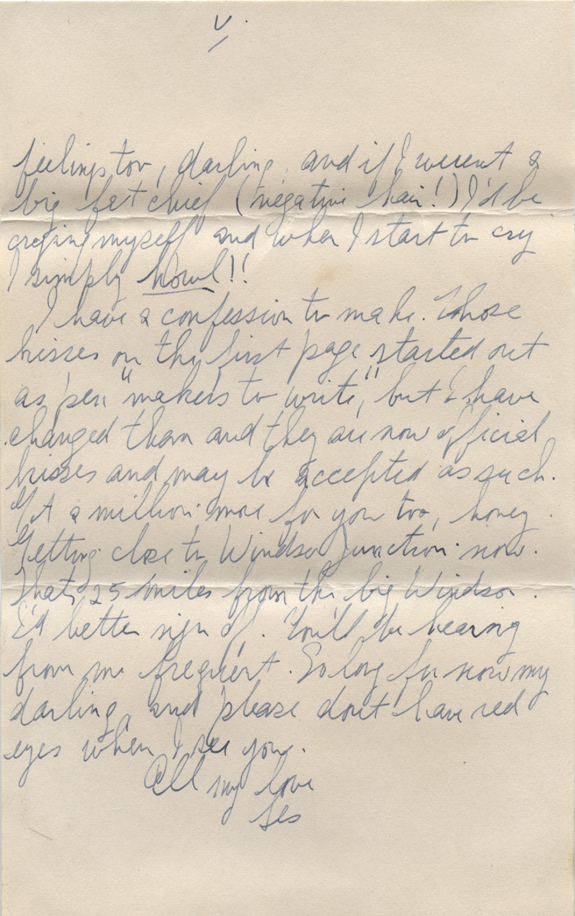 V.
feelings too, darling, and if I weren't a
big fat chief (negative hair!) I'd be
crying myself and when I start to cry
I simply howl!!
I have a confession to make. Those
kisses on the first page started out
as pen "makers to write", but I have
changed them and they are now official
kisses and may be accepted as such.
Got a million more for you too, honey.
Getting close to Windsor Junction now.
That's 25 miles from the big Windsor.
I'd better sign off. You'll be hearing
from me frequent. So long for now my
darling, and please don't have red
eyes when I see you.
All my love
Les